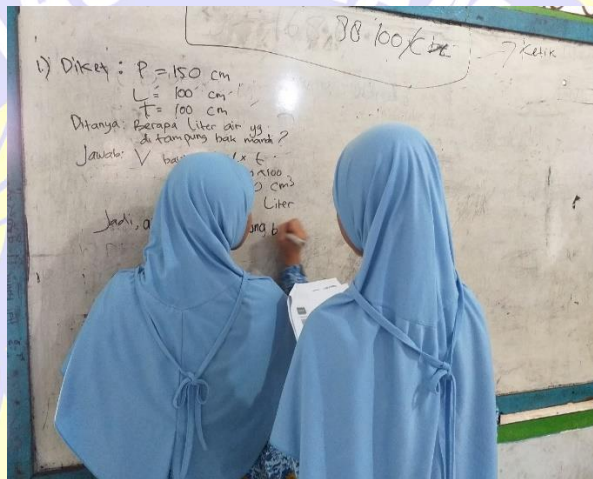 38 100/C
Ketik
1) Diket : P = 150 cm
L = 100 cm
T = 100 cm
Ditanya: Berapa liter air yg
di tampung bak mandi ?
Jawab: V ba × t
×100
0 cm³
Liter
Jadi, a ung b